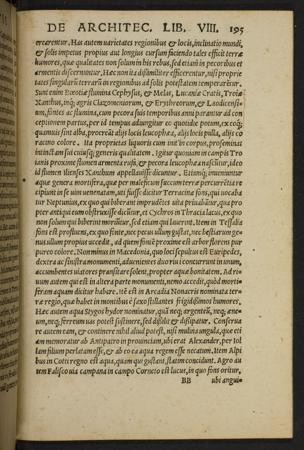 DE ARCHITEC. LIB. VIII. 195
ercerentur. Hæc autem varietates regionibus & locis, inclinatio mundi,
& solis impetus propius aut longius cursum faciendo tales efficit terræ
humores, quæ qualitates non solum in his rebus, sed etiam in pecoribus et
armentis discernuntur. Hæc non ita dissimiliter efficerentur, nisi proprie
tates singularũ terrarũ in regionibus ad solis potestatem temperarẽtur.
Sunt enim Bœotiæ flumina Cephysus, & Melas, Lucaniæ Crathis, Troiæ
Xanthus, inq; agris Clazomeniorum, & Erythreorum, & Laodicensiũ
fontes ac flumina, cum pecora suis temporibus anni parantur ad con
ceptionem partus, per id tempus adiguntur eo quotidie potum, ex eoq;
quamuis sint alba, procreãt alijs locis leucophæa, alijs locis pulla, alijs co
racino colore. ita proprietas liquoris cum init in corpus, proseminat
intinctam sui cuiusq; generis qualitatem. Igitur quoniam in campis Tro
ianis proxime flumen armenta rufa, & pecora leucophæa nascũtur, ideo
id flumen Ilienses Xanthum appellauisse dicuntur. Etiamq; inueniuntur
aquæ genera mortifera, quæ per maleficum succum terræ percurrẽtia re
cipiunt in se uim uenenatam, uti fuisse dicitur Terracinæ fons, qui uocaba
tur Neptunius, ex quo qui biberant imprudẽtes uita priuabãtur, qua pro
pter antiqui eum obstruxisse dicũtur, et Cychros in Thracia lacus, ex quo
non solum qui biberint moriũtur, sed etiam qui lauerint. Item in Thessalia
fons est profluens, ex quo fonte, nec pecus ullum gustat, nec bestiarum ge-
nus ullum propius accedit, ad quem fontẽ proxime est arbor florens pur
pureo colore. Non minus in Macedonia, quo loci sepultus est Euripides,
dextra ac sinistra monumenti, aduenientes duo riui concurrunt in unum,
accumbentes uiatores pransitare solent, propter aquæ bonitatem. Ad ri-
uum autem qui est in altera parte monumenti, nemo accedit, quòd morti-
feram aquam dicitur habere. itẽ est in Arcadia Nonacris nominata ter-
ræ regio, quæ habet in montibus è saxo stillantes frigidissimos humores,
Hæc autem aqua Stygos hydor nominatur, quã neq; argenteũ, neq; æne-
um, neq; ferreum uas potest sustinere, sed dissilit & dissipatur. Conserua
re autem eam, & continere nihil aliud potest, nisi mulina ungula, quæ eti
am memoratur ab Antipatro in prouinciam, ubi erat Alexander, per Iol
lam filium perlatam esse, & ab eo ea aqua regem esse necatum. Item Alpi
bus in Cotti regno est aqua, quam qui gustant statim concidunt. Agro au
tem Falisco uia campana in campo Corneto est lucus, in quo fons oritur,
BB ubi angui-